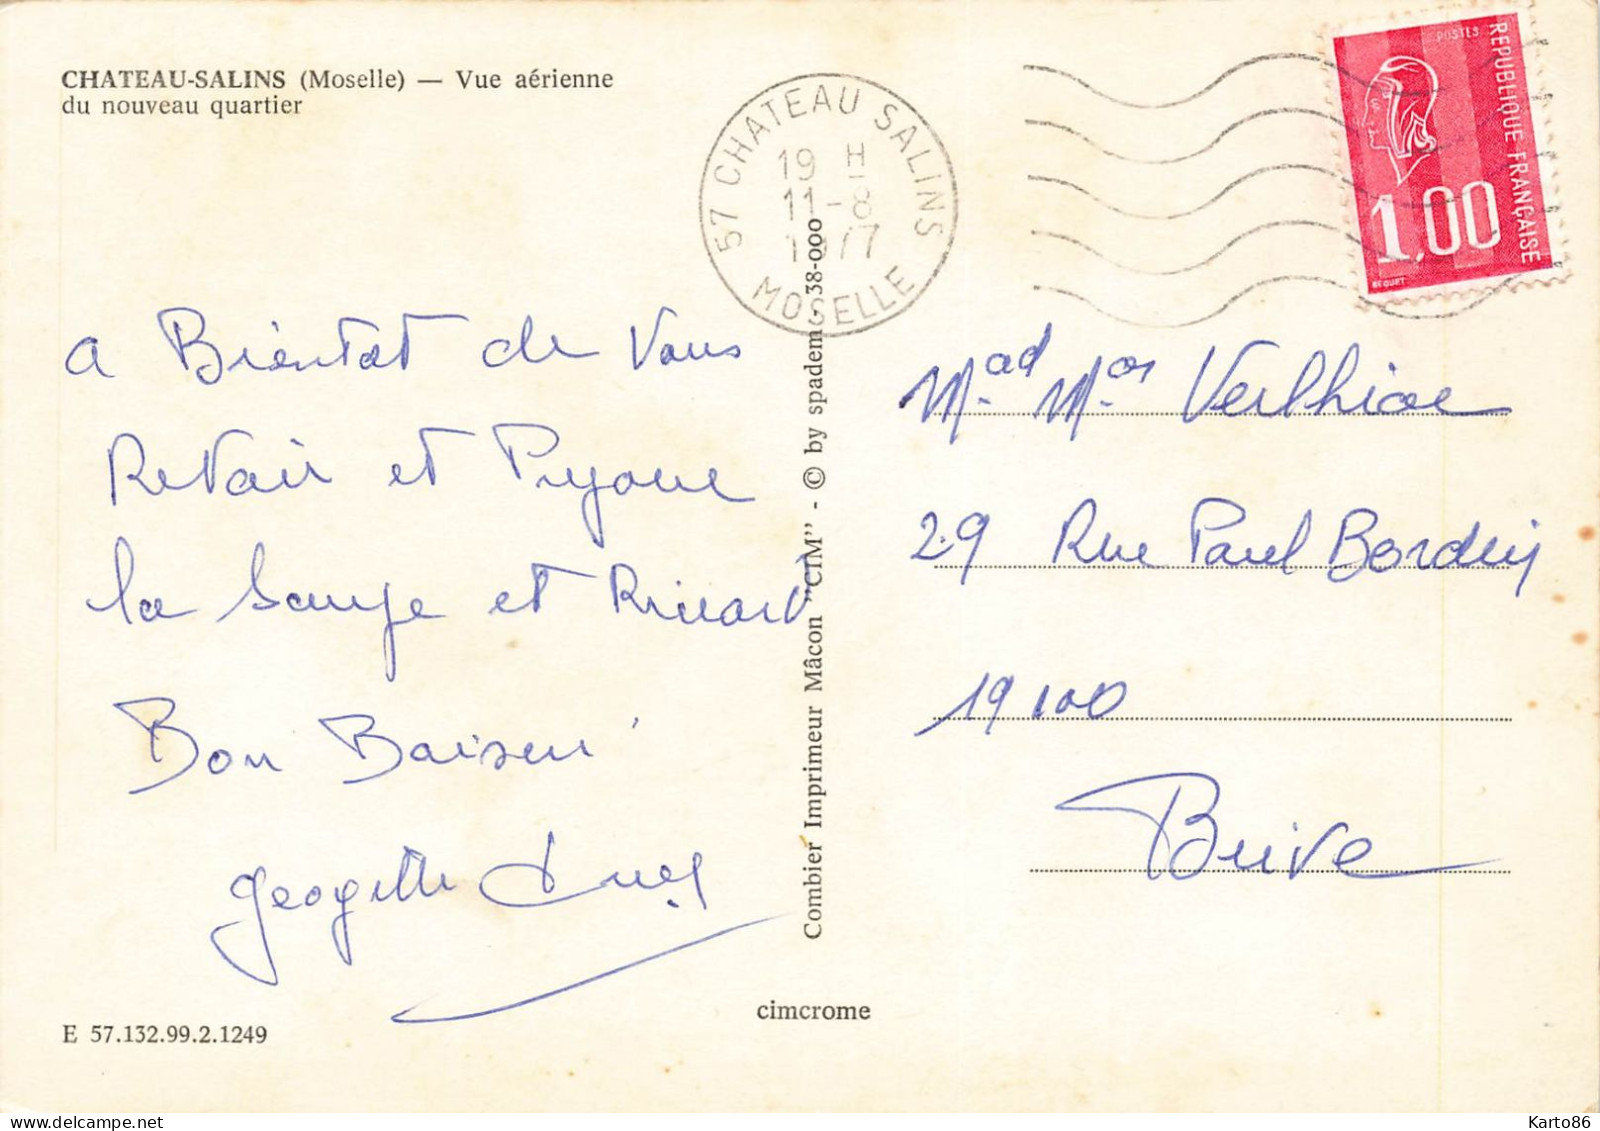 CHATEAU-SALINS (Moselle) — Vue aérienne
du nouveau quartier
57 CHATEAU SALINS
19 H
11-8
1977
MOSELLE
POSTES
REPUBLIQUE FRANÇAISE
1,00
BEQUET
a Bientot de Vous
Revoir et
la et Ricard
Bon Baiser
Georgette
E 57.132.99.2.1249
Combier Imprimeur Mâcon "CIM" - © by spadem - 38-000
cimcrome
Mad Mor Verlhiac
29 Rue Paul Bordeuy
19100
Brive
Karto86